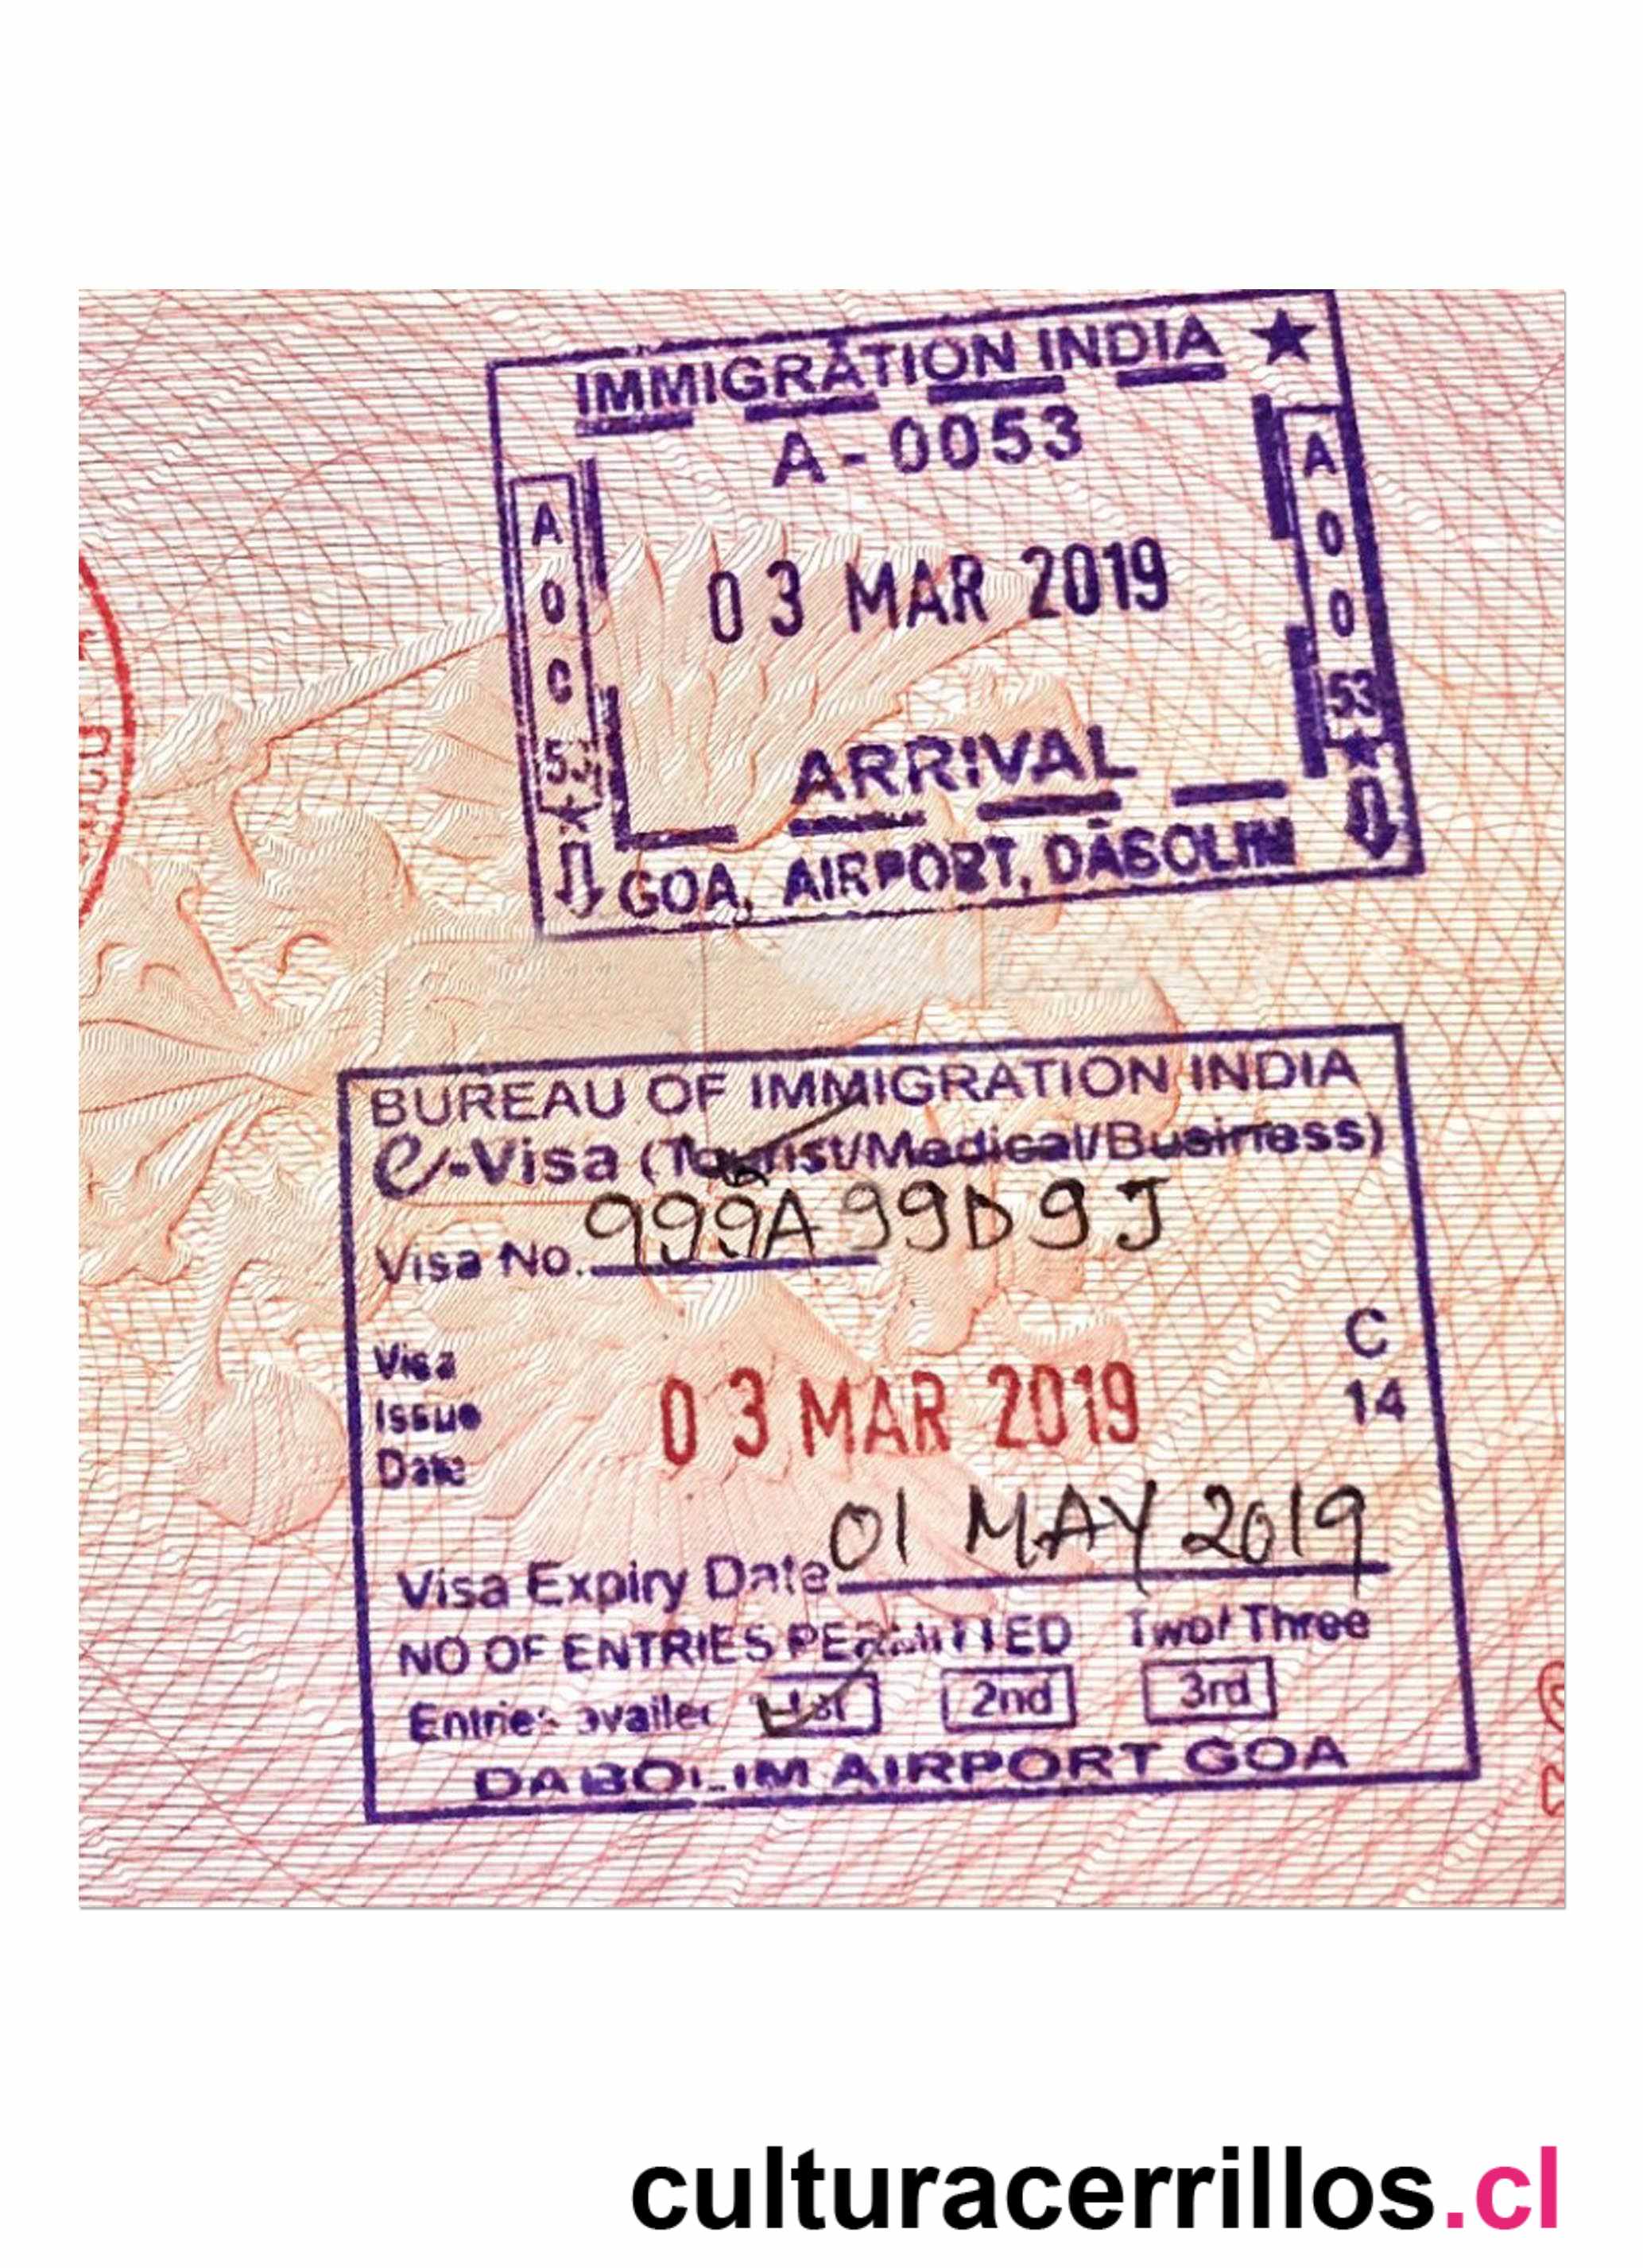 IMMIGRATION INDIA ★
A-0053
A
0
0
53
★
A
0
C
53
★
03 MAR 2019
ARRIVAL
GOA, AIRPORT, DABOLIM
BUREAU OF IMMIGRATION INDIA
e-Visa (Tourist/Medical/Business)
Visa No. 999A99D9J
Visa
Issue
Date
03 MAR 2019
C
14
Visa Expiry Date 01 MAY 2019
NO OF ENTRIES PERMITTED Two/ Three
Entries availed 1st 2nd 3rd
DABOLIM AIRPORT GOA
culturacerrillos.cl